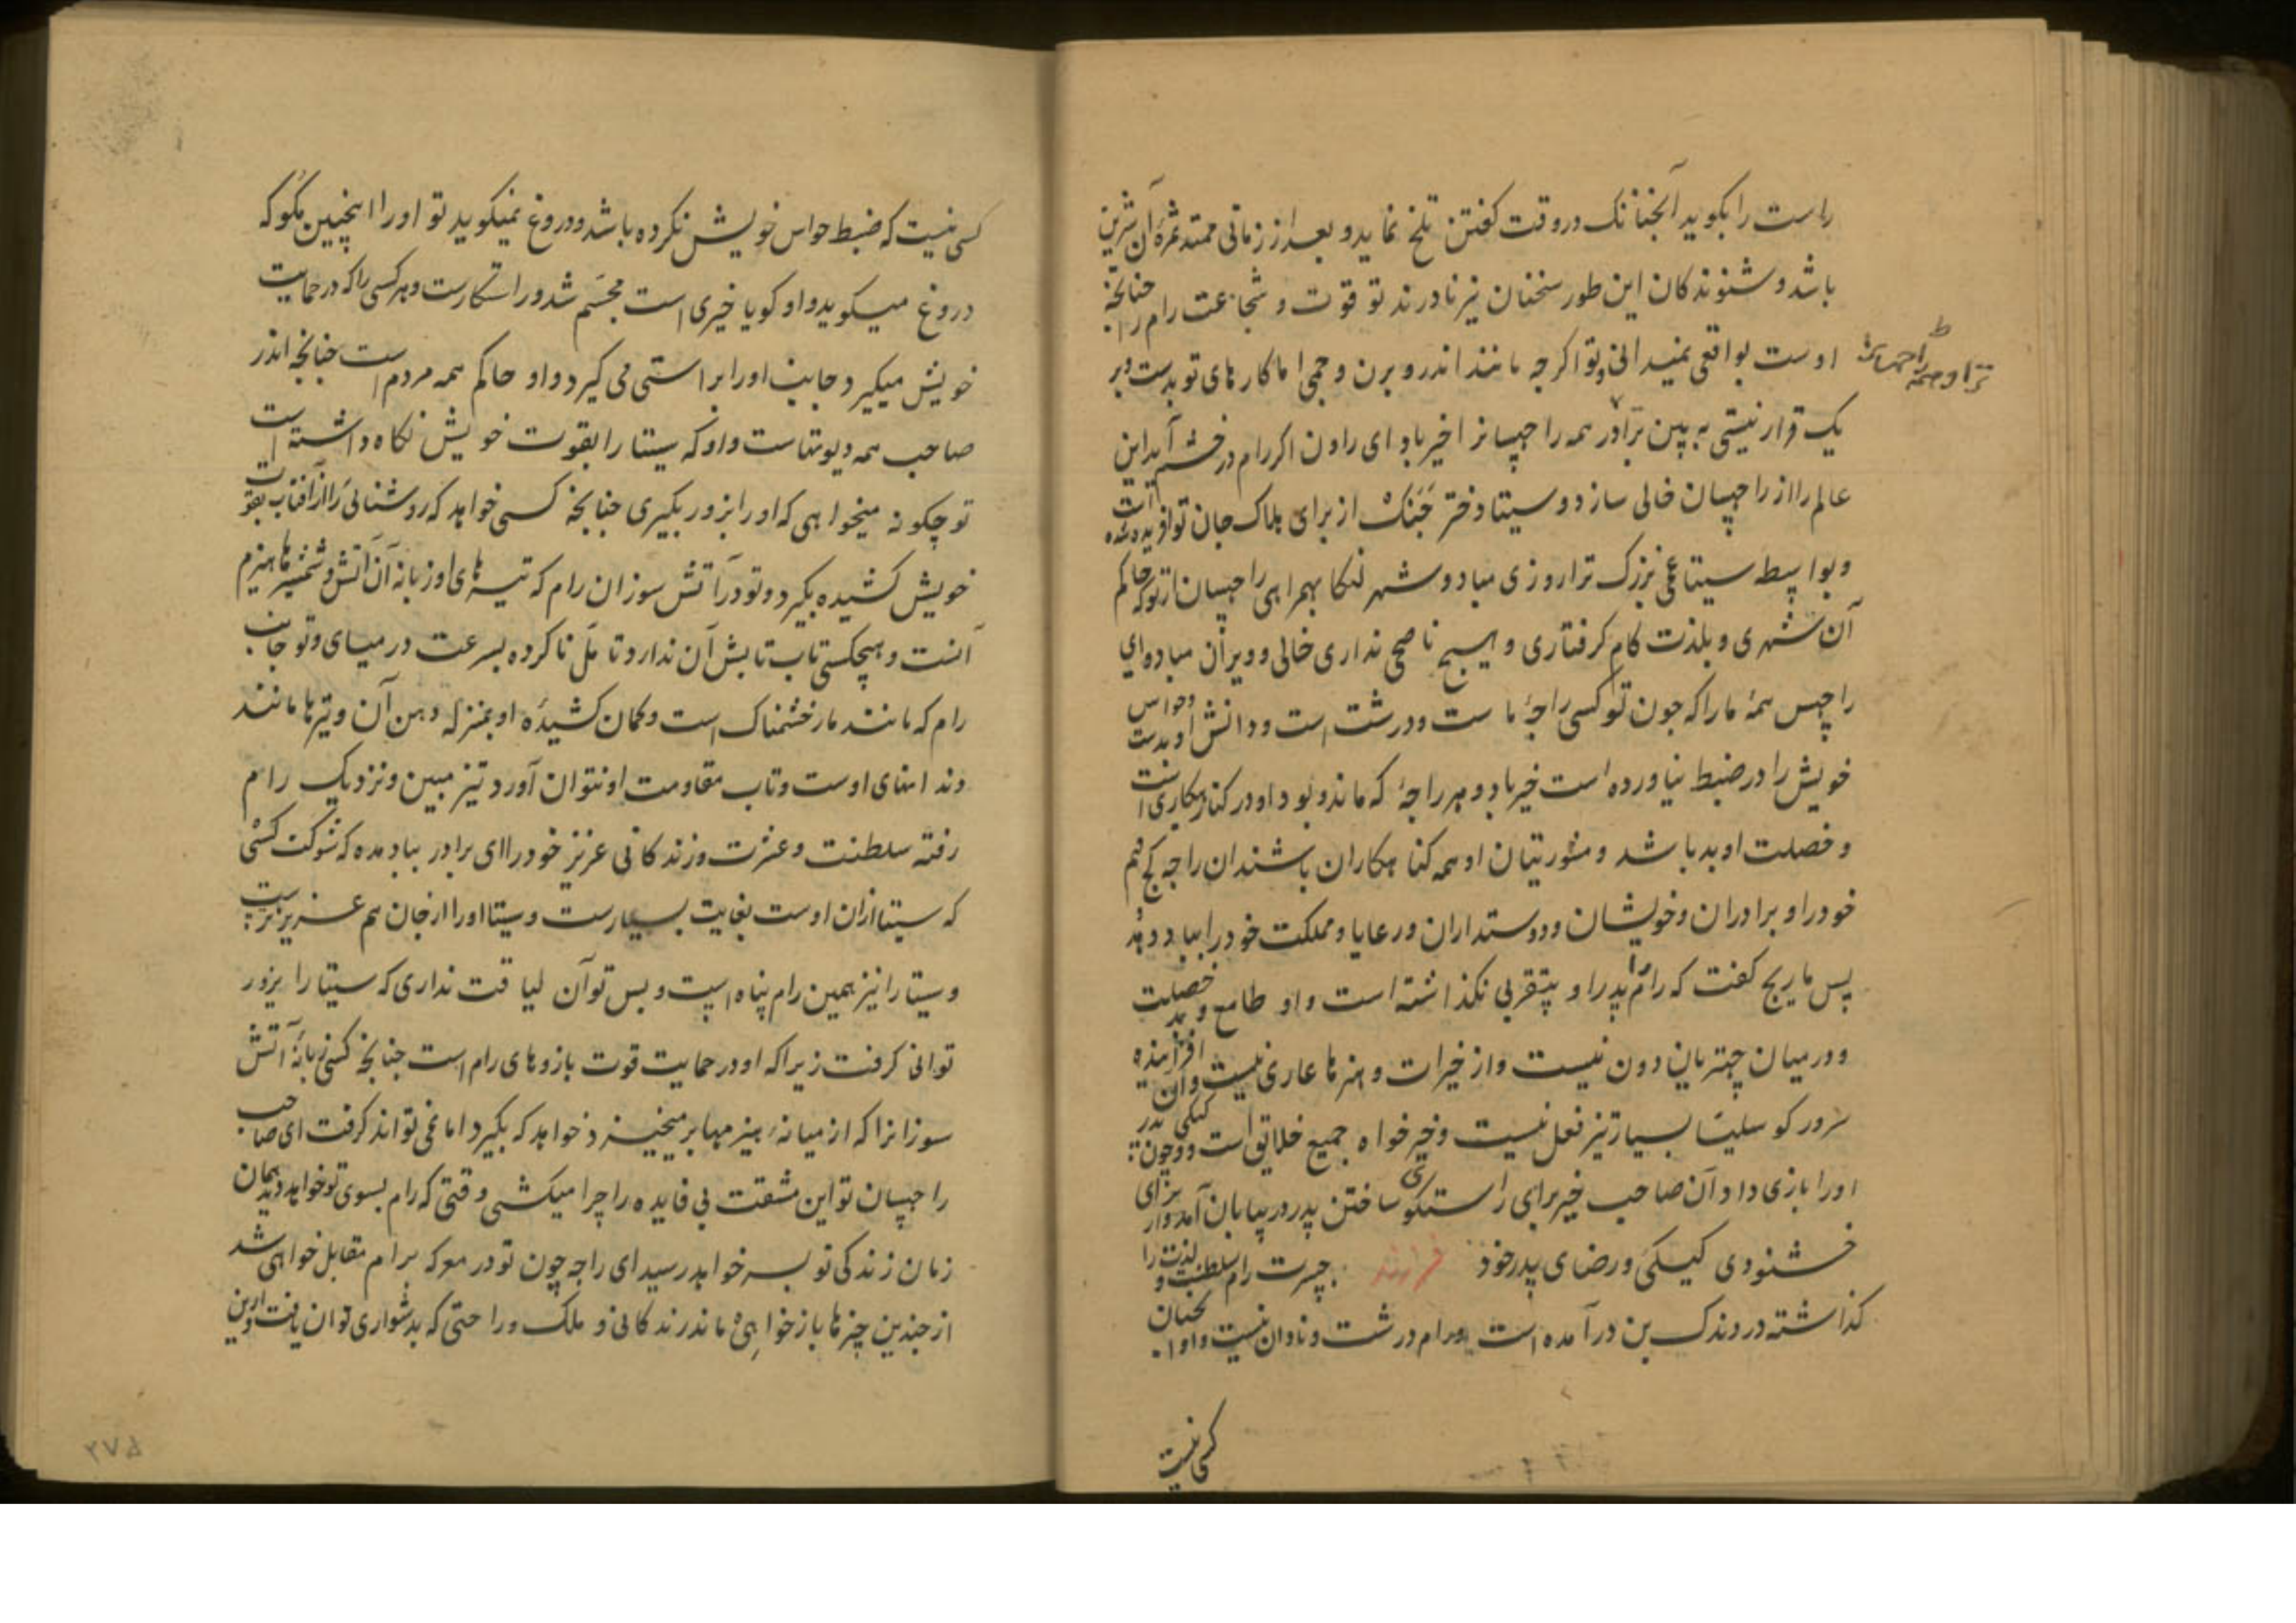 راست را بکوید آنچنانک در وقت کفتن تلخ نماید و بعد از زمانی ممتد ثمرهٔ آن شیرین
باشد و شنوندکان این طور سخنان نیز نادرند تو قوت و شجاعت رام را چنانچه
اوست بواقعی نمیدانی و تو اکرچه مانند اندر و برن و جمی اما کارهای تو بدست و بر
یک قرار نیستی به بین برادر همه را چهسانرا خیر باد ای راون اکر رام در خشم آید این
عالم را از راچهسان خالی سازد و سیتا دختر جنک از برای هلاک جان تو آفریده شده است
و بواسطه سیتا غمی بزرک ترا روزی مباد و شهر لنکا بهمراهی راچهسان از تو که حاکم
آن شهری و بلذت کام کرفتاری و هیچ ناصحی نداری خالی و ویران مباد و ای
راچهس همهٔ ما را که چون تو کسی راجهٔ ماست و درشت است و دانش او بدست و حواس
خویش را در ضبط نیاورده است خیر باد و هر راجهٔ که مانند تو بود او در کنار بدکاری است
و خصلت او بد باشد و مشورتیان او همه کناهکاران باشند آن راجه کج فهم
خود را و برادران و خویشان و دوستداران و رعایا و مملکت خود را بباد دهد
پس ماریچ کفت که رام را پدر او بتقربی نکذاشته است و او طامع و بد خصلت
و در میان چهتریان دون نیست و از خیرات و هنرها عاری نیست و آن افزاینده
سرور کوسلیا بسیار تیز فعل نیست و خیرخواه جمیع خلایق است و چون کیکی پدر
او را بازی داد آن صاحب خیر برای راستکوی ساختن پدر در بیابان آمد و از برای
خشنودی کیکی و رضای پدر خود چسرت رام سلطنت و لذت را
کذاشته در دندک بن درآمده است و رام درشت و نادان نیست و او
کسی نیست
کسی نیست که ضبط حواس خویش نکرده باشد و دروغ نمیکوید تو او را اینچنین مکو که
دروغ میکوید و او کویا خیری است مجسم شد و راستکارست و هر کسی را که در حمایت
خویش میکیرد جانب او را براستی می کیرد و او حاکم همه مردم است چنانچه اندر
صاحب همه دیوتهاست و او که سیتا را بقوت خویش نکاه داشته است
تو چکونه میخواهی که او را بزور بکیری چنانچه کسی خواهد که روشنائی را از آفتاب بقوت
خویش کشیده بکیرد و تو در آتش سوزان رام که تیرهای او زبانه آن آتش و شمشیرها هیزم
آنست و هیچکسی تاب تابش آن ندارد تامل ناکرده بسرعت در میای و تو جانب
رام که مانند مار خشمناک است و کمان کشیدهٔ او بمنزله دهن آن و تیرها مانند
دندانهای اوست و تاب مقاومت او نتوان آورد تیز مبین و نزدیک رام
رفته سلطنت و عشرت و زندکانی عزیز خود را ای برادر بباد مده که شوکت کسی
که سیتا از آن اوست بغایت بسیارست و سیتا او را از جان هم عزیزترست
و سیتا را نیز همین رام پناه است و بس تو آن لیاقت نداری که سیتا را بزور
توانی کرفت زیرا که او در حمایت قوت بازوهای رام است چنانچه کسی زبانهٔ آتش
سوزانرا که از میانهٔ هیزمها بر میخیزد خواهد که بکیرد اما نمی تواند کرفت ای صاحب
راچهسان تو این مشقت بی فایده را چرا میکشی وقتی که رام بسوی تو خواهد دید همان
زمان زندکی تو بسر خواهد رسید ای راجه چون تو در معرکه برام مقابل خواهی شد
از چندین چیزها باز خواهی ماند زندکانی و ملک و راحتی که بدشواری توان یافت